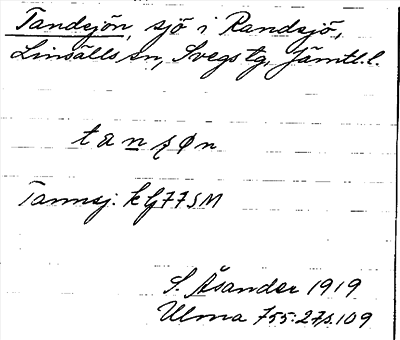 Tandsjön, sjö i Randsjö,
Linsälls sn, Svegs tg, Jämtl. l.
tanʂøn
Tannsj: k G77SM
S. Åsander 1919
Ulma 755:27 s. 109